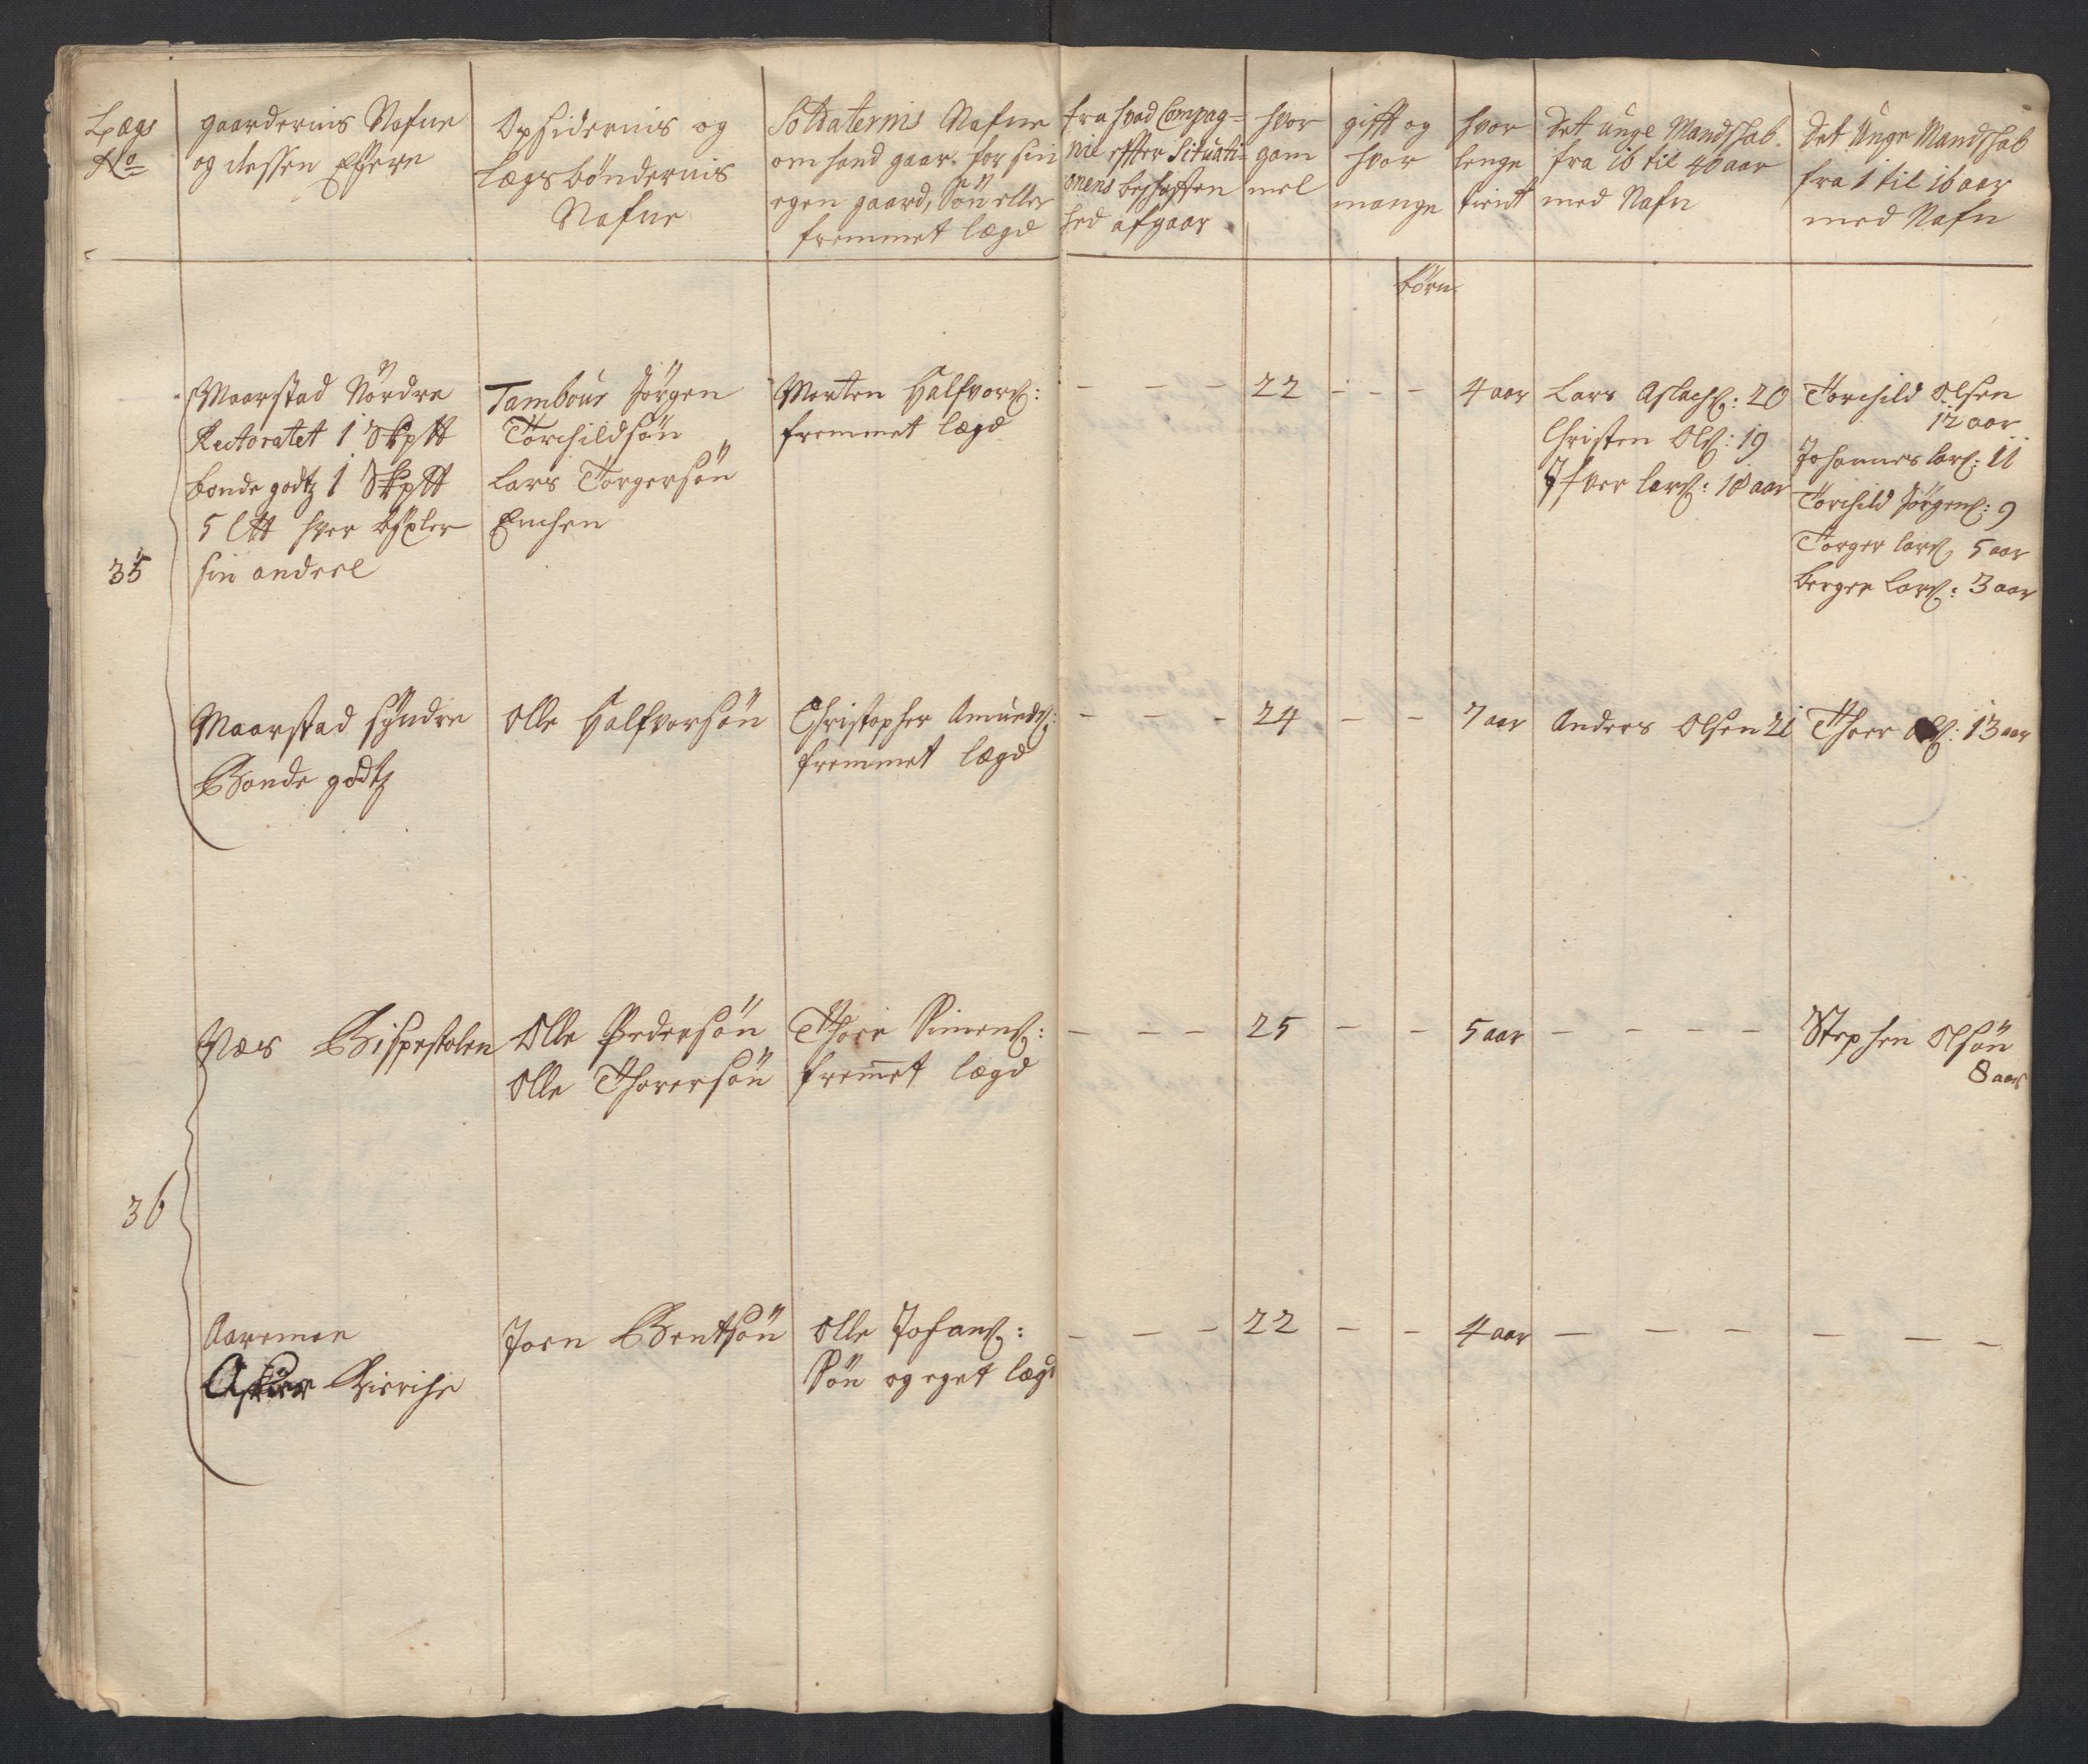 Lægs
No
gaardernis Nafne
og dessen Eÿere
Opsidernis og
Lægsbøndernis
Nafne
Soldaternis Nafne
om hand gaar for sin
egen gaard, Søn eller
fremmet lægd
fra hvad Compag=
nie effter Situati=
onens beskaffen
hed afgaar
hvor
gam
mel
gifft og
hvor
mange
børn
hvor
lenge
tient
Det unge Mandskab
fra 16 til 40 aar
med Nafn
Det Unge Mandskab
fra 1 til 16 aar
med Nafn
35
Maarstad Nordre
Rectoratet 1 Skp tt
bonde godtz 1 Skp tt
5 Ltt hver
sin andeel
Tambour Jørgen
Torchildsøn
Lars Torgersøn
Enchen
Morten Halfvors:
fremmet lægd
- - - 22 - - - 4 aar
Lars Aslachs: 20
Christen Ols: 19
Ifver lars: 18 aar
Torchild Olsen
12 aar
Johannes lars: 11
Torchild Jørgens: 9
Torger lars 5 aar
berger Lars: 3 aar
Maarstad syndre
Bonde godtz
Olle Halfvorsøn
Christopher Amunds:
fremmet lægd
- - - 24 - - 7 aar
Anders Olsen 21
Thoer Ols: 13 aar
36
Næs Bispestolen
Olle Pedersøn
Olle Thorersøn
Thoer Simens:
fremet lægd
- - - 25 - - 5 aar - - - -
Stephen Olsøn
8 aar
Aaremoe
Asker Kirche
Joen Bentsøn
Olle Johans:
Søn og eget lægd
- - - 22 - - 4 aar - - - - - -